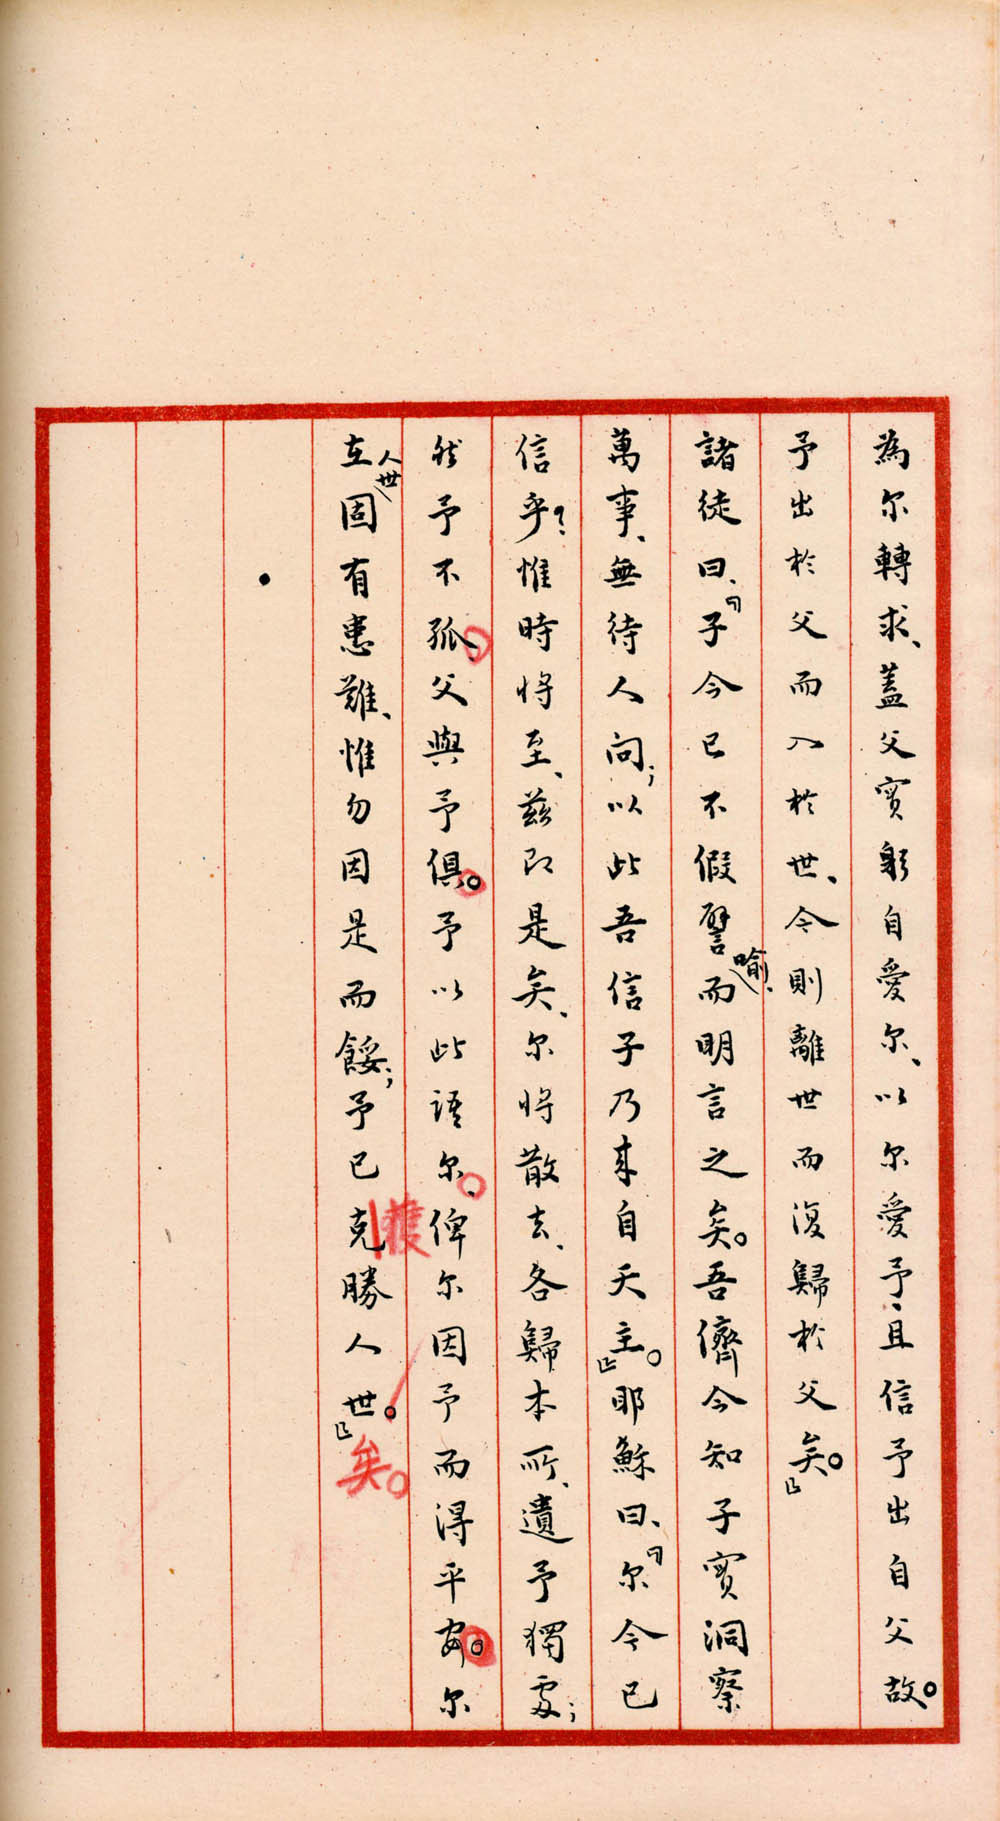 為尔轉求、蓋父實躬自愛尔、以尔愛予、且信予出自父故。
予出於父而入於世、今則離世而復歸於父矣。」
諸徒曰、「子今已不假譬喻、而明言之矣。吾儕今知子實洞察
萬事、無待人問；以此吾信子乃來自天主。」耶穌曰、「尔今已
信乎？惟時將至、茲即是矣、尔將散去、各歸本所、遺予獨處；
然予不孤、父與予俱。予以此語尔、俾尔因予而得平安。尔
在人世固有患難、惟勿因是而餒；予已克獲勝人世。」矣。